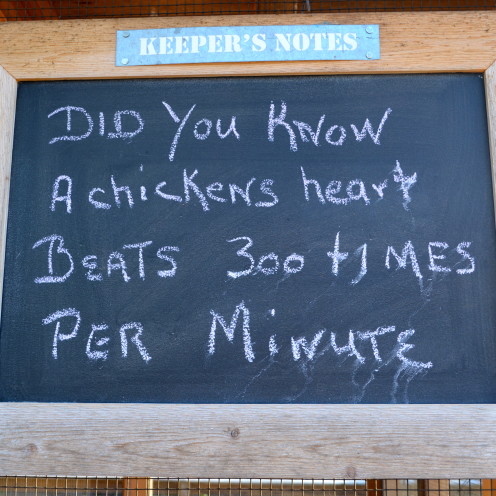 KEEPER'S NOTES
DID You Know
A chickens heart
BEATS 300 tIMES
PER MINUTE